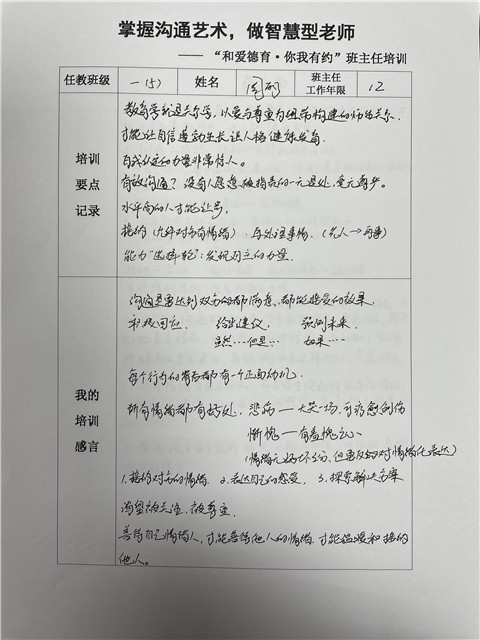 掌握沟通艺术，做智慧型老师
—— “和爱德育·你我有约”班主任培训
任教班级 一（5） 姓名 周 班主任工作年限 12
培训要点记录
教育学就是关系学，以爱与尊重为纽带构建的师生关系，
才能让自信蓬勃生长让人格健康发育。
自我认定的力量非常惊人。
有效沟通？没有人愿意被指责的一无是处，毫无尊严。
水平高的人才能让步。
接纳（允许对方有情绪），再处理事情。（先人→再事）
能力“选择轮”：发现自主的力量。
我的培训感言
沟通是要达到双方的都满意、都能接受的效果
积极回应。 给出建议。 预测未来。
虽然……但是…… 如果……
每个行为的背后都有一个正面动机。
所有情绪都有好处，悲痛——大哭一场，可疗愈创伤
惭愧——有羞愧心
（情绪无好坏之分，但要及时对情绪化表达）
1.接纳对方的情绪 2.表达自己的感受。 3.探索解决方案
渴望被关注，被尊重。
善待自己情绪的人，才能善待他人的情绪，才能温暖和接纳
他人。